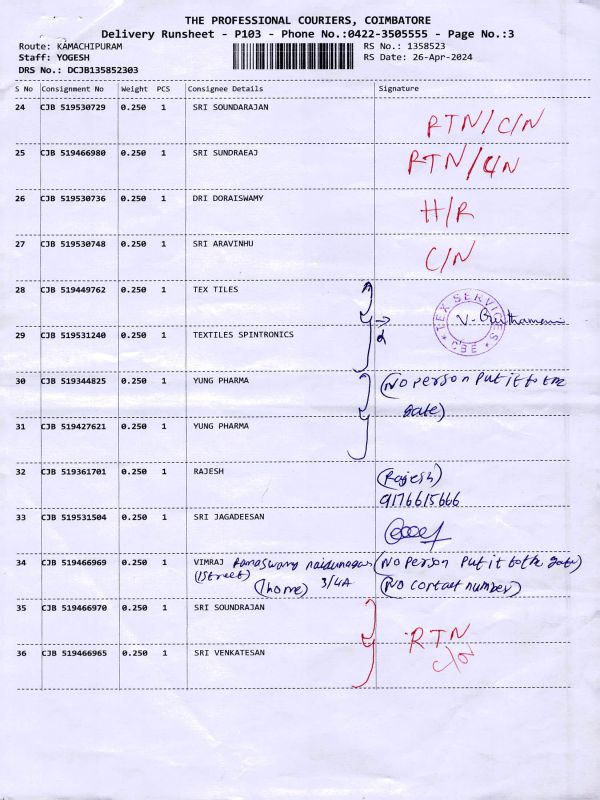 THE PROFESSIONAL COURIERS, COIMBATORE
Delivery Runsheet - P103 - Phone No.:0422-3505555 - Page No.:3
Route: KAMACHIPURAM RS No.: 1358523
Staff: YOGESH RS Date: 26-Apr-2024
DRS No.: DCJB135852303
S No Consignment No Weight PCS Consignee Details Signature
24 CJB 519530729 0.250 1 SRI SOUNDARAJAN
RTN/C/N
25 CJB 519466980 0.250 1 SRI SUNDRAEAJ
RTN/C/N
26 CJB 519530736 0.250 1 DRI DORAISWAMY
H/R
27 CJB 519530748 0.250 1 SRI ARAVINHU
C/N
28 CJB 519449762 0.250 1 TEX TILES
TEX SERVICES
CBE
29 CJB 519531240 0.250 1 TEXTILES SPINTRONICS
2
30 CJB 519344825 0.250 1 YUNG PHARMA (No person Put it to the
gate)
31 CJB 519427621 0.250 1 YUNG PHARMA
32 CJB 519361701 0.250 1 RAJESH (Rajesh)
9176615666
33 CJB 519531504 0.250 1 SRI JAGADEESAN
34 CJB 519466969 0.250 1 VIMRAJ Ramaswamy naidunagar (No person Put it to the gate)
(1street) (home) 3/4A (No contact number)
35 CJB 519466970 0.250 1 SRI SOUNDRAJAN
RTN
36 CJB 519466965 0.250 1 SRI VENKATESAN